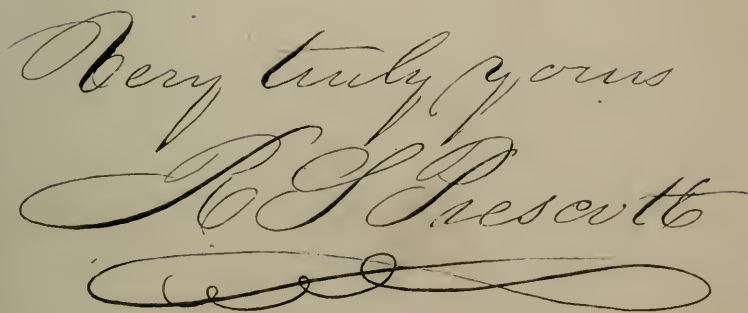 Very truly yours
R S Prescott